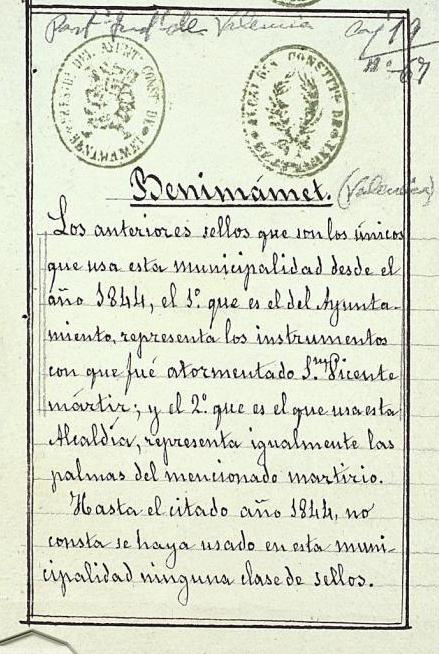 Part. Jud. de Valencia Caj 19
Nº 67
Benimámet. (Valencia)
Los anteriores sellos que son los únicos
que usa esta municipalidad desde el
año 1844, el 1º que es el del Ayunta-
miento, representa los instrumentos
con que fué atormentado S.n Vicente
mártir; y el 2º que es el que usa esta
Alcaldía, representa igualmente las
palmas del mencionado martirio.
Hasta el citado año 1844, no
consta se haya usado en esta muni-
cipalidad ninguna clase de sellos.